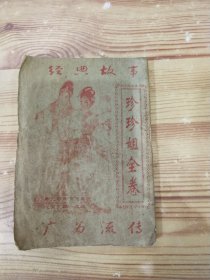 经典故事
珍珍姐全卷
广为流传